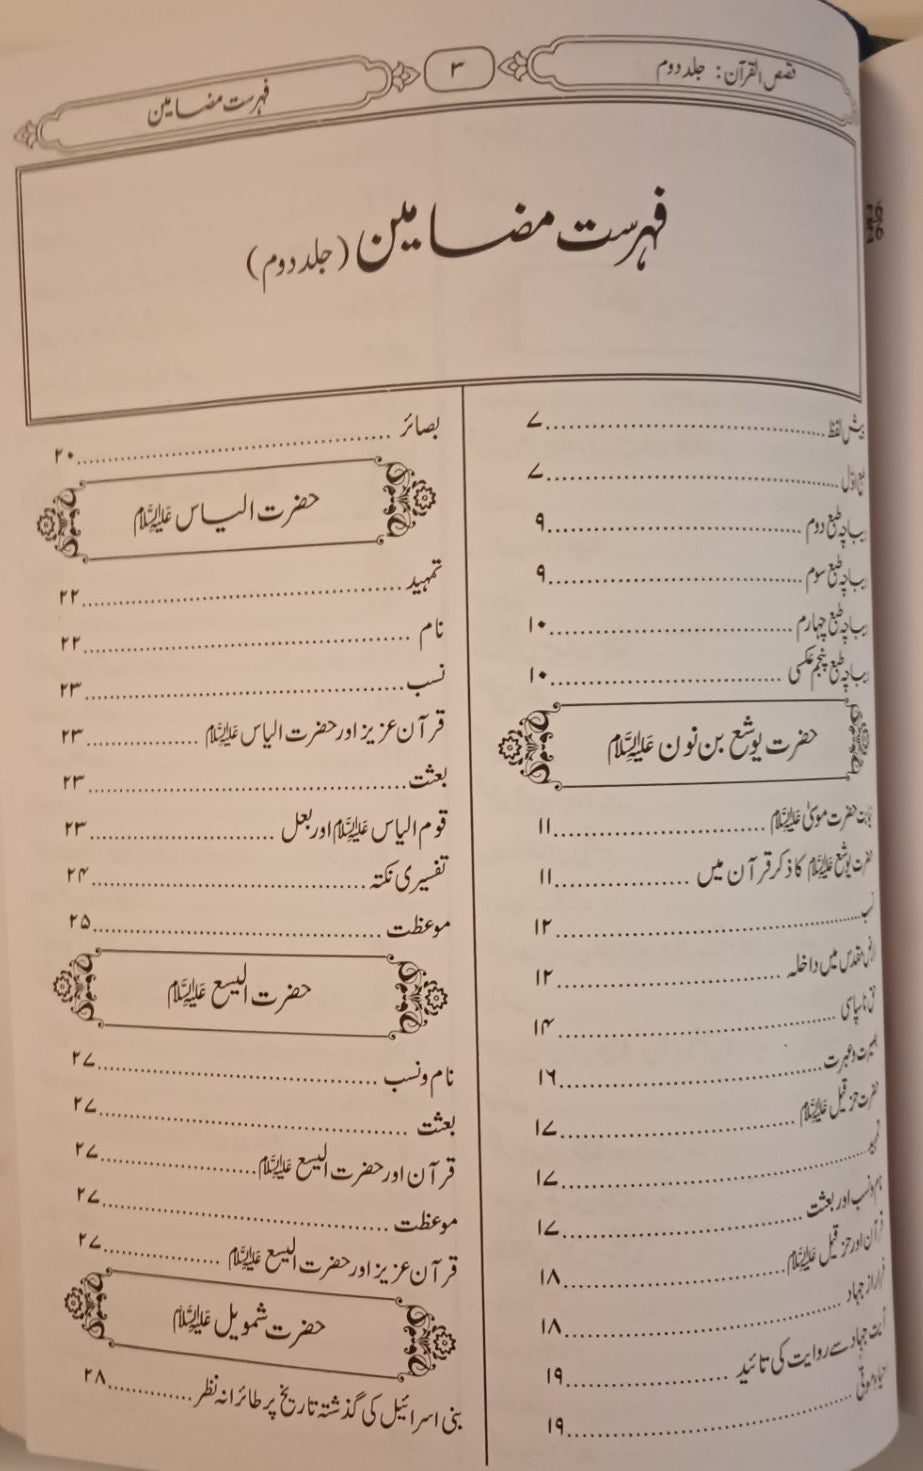 قصص القرآن: جلد دوم
۳
فہرست مضامین
فہرست مضامین (جلد دوم)
پیش لفظ ۷
۷
طبع دوم ۹
طبع سوم ۹
طبع چہارم ۱۰
طبع پنجم عکسی ۱۰
حضرت یوشع بن نون علیہ السلام
حضرت موسیٰ علیہ السلام ۱۱
حضرت یوشع علیہ السلام کا ذکر قرآن میں ۱۱
۱۲
ارض مقدس میں داخلہ ۱۲
۱۴
بصیرت و عبرت ۱۶
حضرت حزقیل علیہ السلام ۱۷
۱۷
نام و نسب اور بعثت ۱۷
قرآن اور حزقیل علیہ السلام ۱۸
فرار از جہاد ۱۸
آیت جہاد سے روایت کی تائید ۱۹
احیاء موتیٰ ۱۹
بصائر ۲۰
حضرت الیاس علیہ السلام
تمہید ۲۲
نام ۲۲
نسب ۲۳
قرآن عزیز اور حضرت الیاس علیہ السلام ۲۳
بعثت ۲۳
قوم الیاس علیہ السلام اور بعل ۲۳
تفسیری نکتہ ۲۴
موعظت ۲۵
حضرت الیسع علیہ السلام
نام و نسب ۲۷
بعثت ۲۷
قرآن اور حضرت الیسع علیہ السلام ۲۷
موعظت ۲۷
قرآن عزیز اور حضرت الیسع علیہ السلام ۲۷
حضرت شمویل علیہ السلام
بنی اسرائیل کی گذشتہ تاریخ پر طائرانہ نظر ۲۸